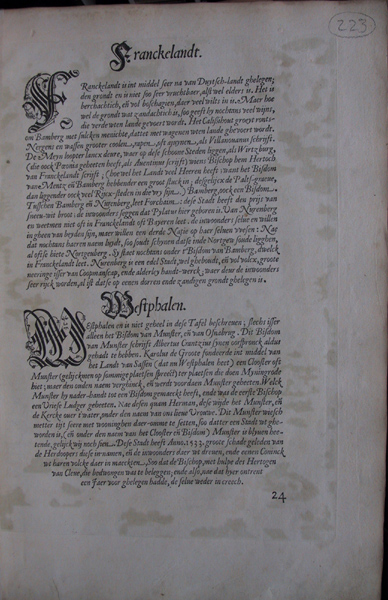 223
Franckelandt.
FRanckelandt is int middel seer na van Duytsch-landt ghelegen;
den grondt en is niet soo seer vruchtbaer, alst wel elders is. Het is
berchachtich, en vol bosschagien, daer veel wilts in is. Maer hoe
wel de grondt wat zandachtich is, soo geeft hy nochtans veel wijns,
die verde wten lande gevoert wordt. Het
om Bamberg met sulcken menichte, datter met wagenen wten lande ghevoert wordt.
Nergens en wassen grooter coolen, rapen, oft aiuynen, als Villanovanus schrijft.
De Meyn loopt lancx deure, waer op dese schoone Steden liggen, als Wirtzburg,
(die oock Peapolis geheeten heeft, als schrijft) wiens Bisschop hem Hertoch
van Franckelandt schrijft; (hoe wel het Landt veel Heeren heeft: want het Bisdom
van Mentz en Bamberg hebbender een groot stuck in; desgelijcx de Palsf-graeve,
dan liggender oock veel Rijcx-steden in die vry sijn.) Bamberg, oock een Bisdom.
Tusschen Bamberg en Nurenberg, leet Forcham: dese Stadt heeft den prijs van
sneeu-wit broot: de inwoonders seggen dat Pylatus hier geboren is. Van Nurenberg
en weetmen niet oft in Franckelandt oft Bayeren leet: de inwoonders selve en willen
in gheen van beyden sijn, maer willen een derde Natie op haer selven wesen:
dat nochtans haeren naem beduydt, soo
al oftse hiete Norigenberg. Sy staet nochtans onder t'Bisdom van Bamberg, dwelck
in Franckelandt leet. Nurenberg is een edel Stadt, wel ghebouwt, en vol volcx, groote
neeringe van Coopmanscap, ende alderley handt-werck, waer deur de inwoonders
seer rijck worden, al ist datse op eenen dorren ende zandigen grondt ghelegen is.
Westphalen.
WEstphalen en is niet geheel in dese Tafel beschreven; slechs isser
alleen het Bisdom van Munster, en van Osnabrug. Dit Bisdom
van Munster schrijft Albertus Crantzius sijnen oorspronck aldus
gehadt te hebben. Karolus de Groote fondeerde int middel van
het Landt van Sassen (dat nu Westphalen heet) een Clooster oft
Munster (gelijckmen op sommige plaetsen spreect) ter plaetsen die doen Mymigrode
hiet; maer den ouden naem verghinck, en werdt voordaen Munster geheeten. Welck
Munster hy nader-handt tot een Bisdom gemaeckt heeft, ende wat de eerste Bisschop
een Vriese Ludger geheeten. Nae desen quam Herman, dese wijde het Munster, en
de Kercke over t'water, onder den naem van ons lieve Vrouwe. Dit Munster wiesch
metter tijt seere met wooninghen daer-omme te setten, soo datter een Stadt wt ghe-
worden is, (en onder den naem van het Clooster en Bisdom) Munster is blyven hee-
tende, gelijck wy noch sien. Dese Stadt heeft Anno 1533. groote schade geleden van
de Herdoopers diese in namen, en de inwoonders daer wt dreven, ende eenen Coninck
wt haren volcke daer in maeckten. Soo dat de Bisschop, met hulpe des Hertogen
van Cleve, die bedwongen was te beleggen; ende also, nae dat hyer ontrent
een Jaer voor ghelegen hadde, de selve weder in creech.
24